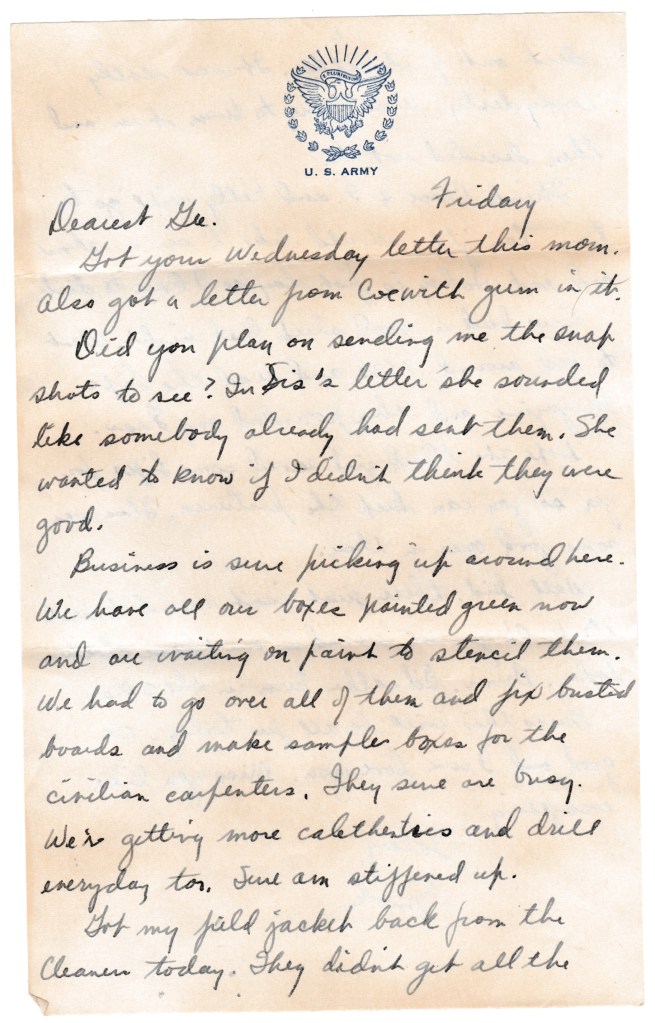 E PLURIBUS UNUM
U. S. ARMY
Friday
Dearest Gee.
Got your Wednesday letter this morn.
Also got a letter from with gum in it.
Did you plan on sending me the snap
shots to see? In Sis's letter she sounded
like somebody already had sent them. She
wanted to know if I didn't think they were
good.
Business is sure picking up around here.
We have all our boxes painted green now
and are waiting on paint to stencil them.
We had to go over all of them and fix busted
boards and make sample boxes for the
civilian carpenters. They sure are busy.
We'r getting more calethentics and drill
everyday too. Sure am stiffened up.
Got my field jacket back from the
Cleaners today. They didn't get all the